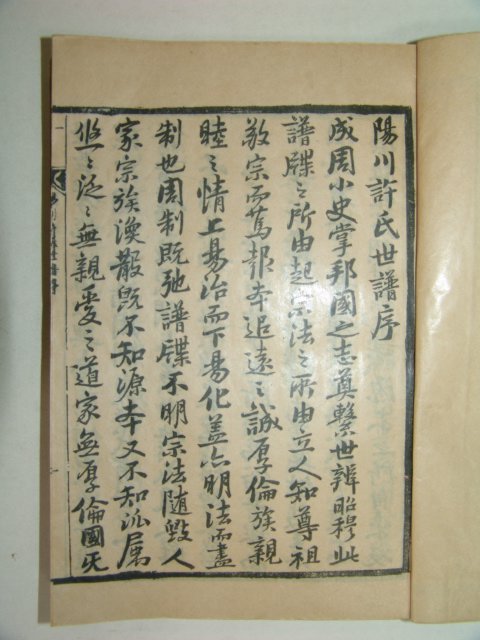 陽川許氏世譜序
成周小史掌邦國之志奠繫世辨昭穆此
譜牒之所由起宗法之所由立人知尊祖
敬宗而篤報本追遠之誠厚倫族親
睦之情上易治而下易化盖亦明法而盡
制也周制既弛譜牒不明宗法随毀人
家宗族渙散既不知源本又不知派属
悠〻泛〻無親愛之道家無厚倫國天